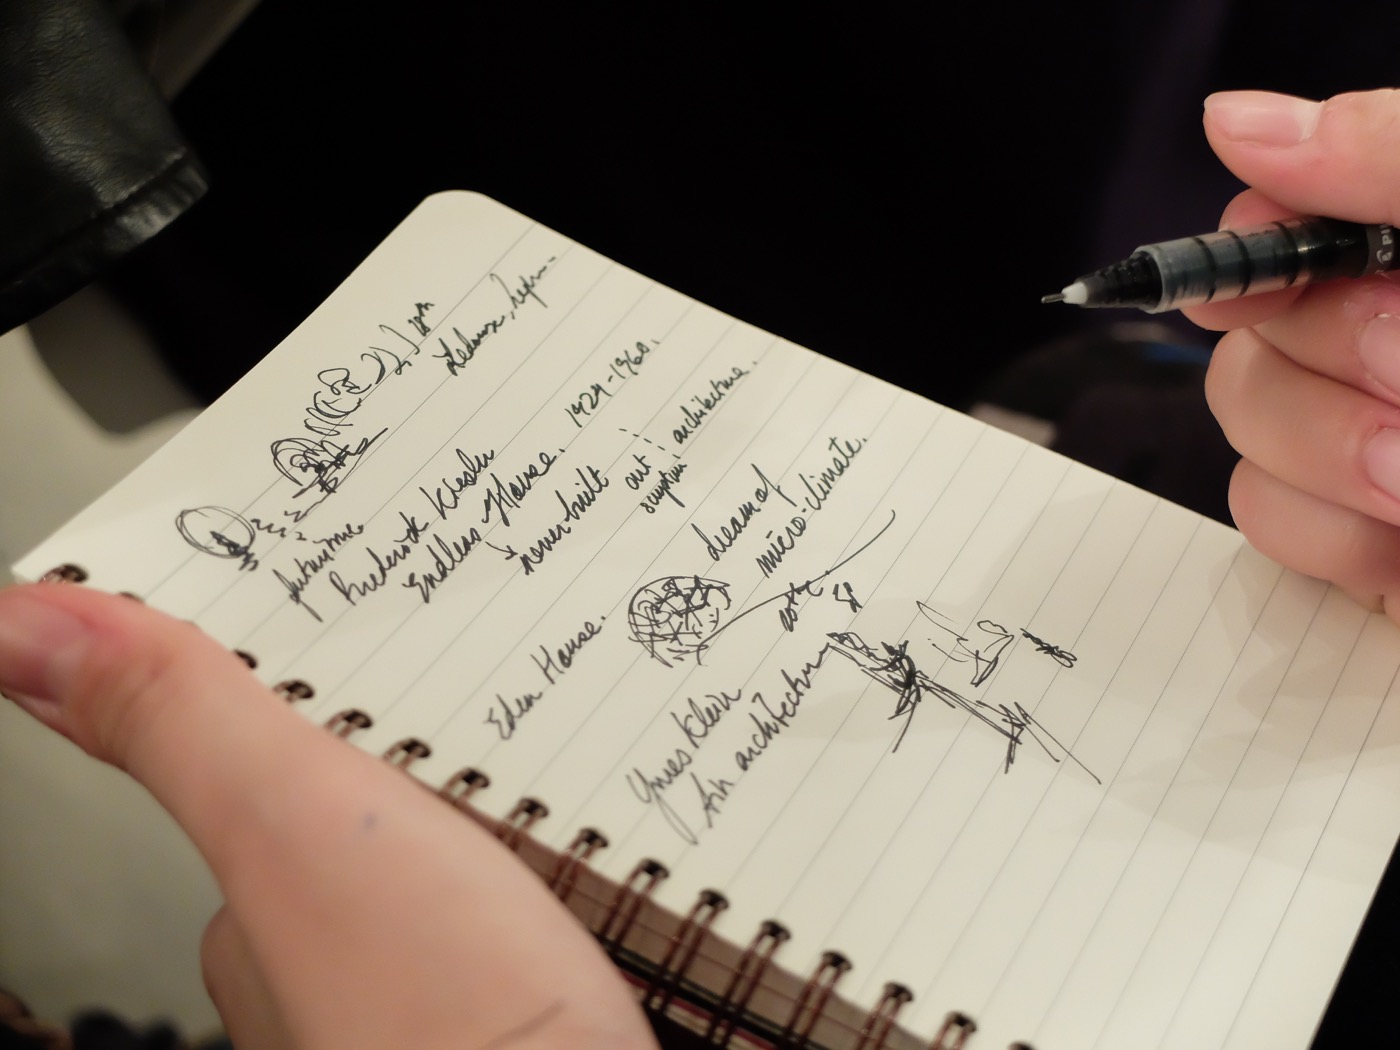 18th
futurisme
Frederick Kiesler
Endless House. 1924-1960.
never built
art
architecture.
Eden House.
dream of
micro-climate.
Yves Klein
Air architecture